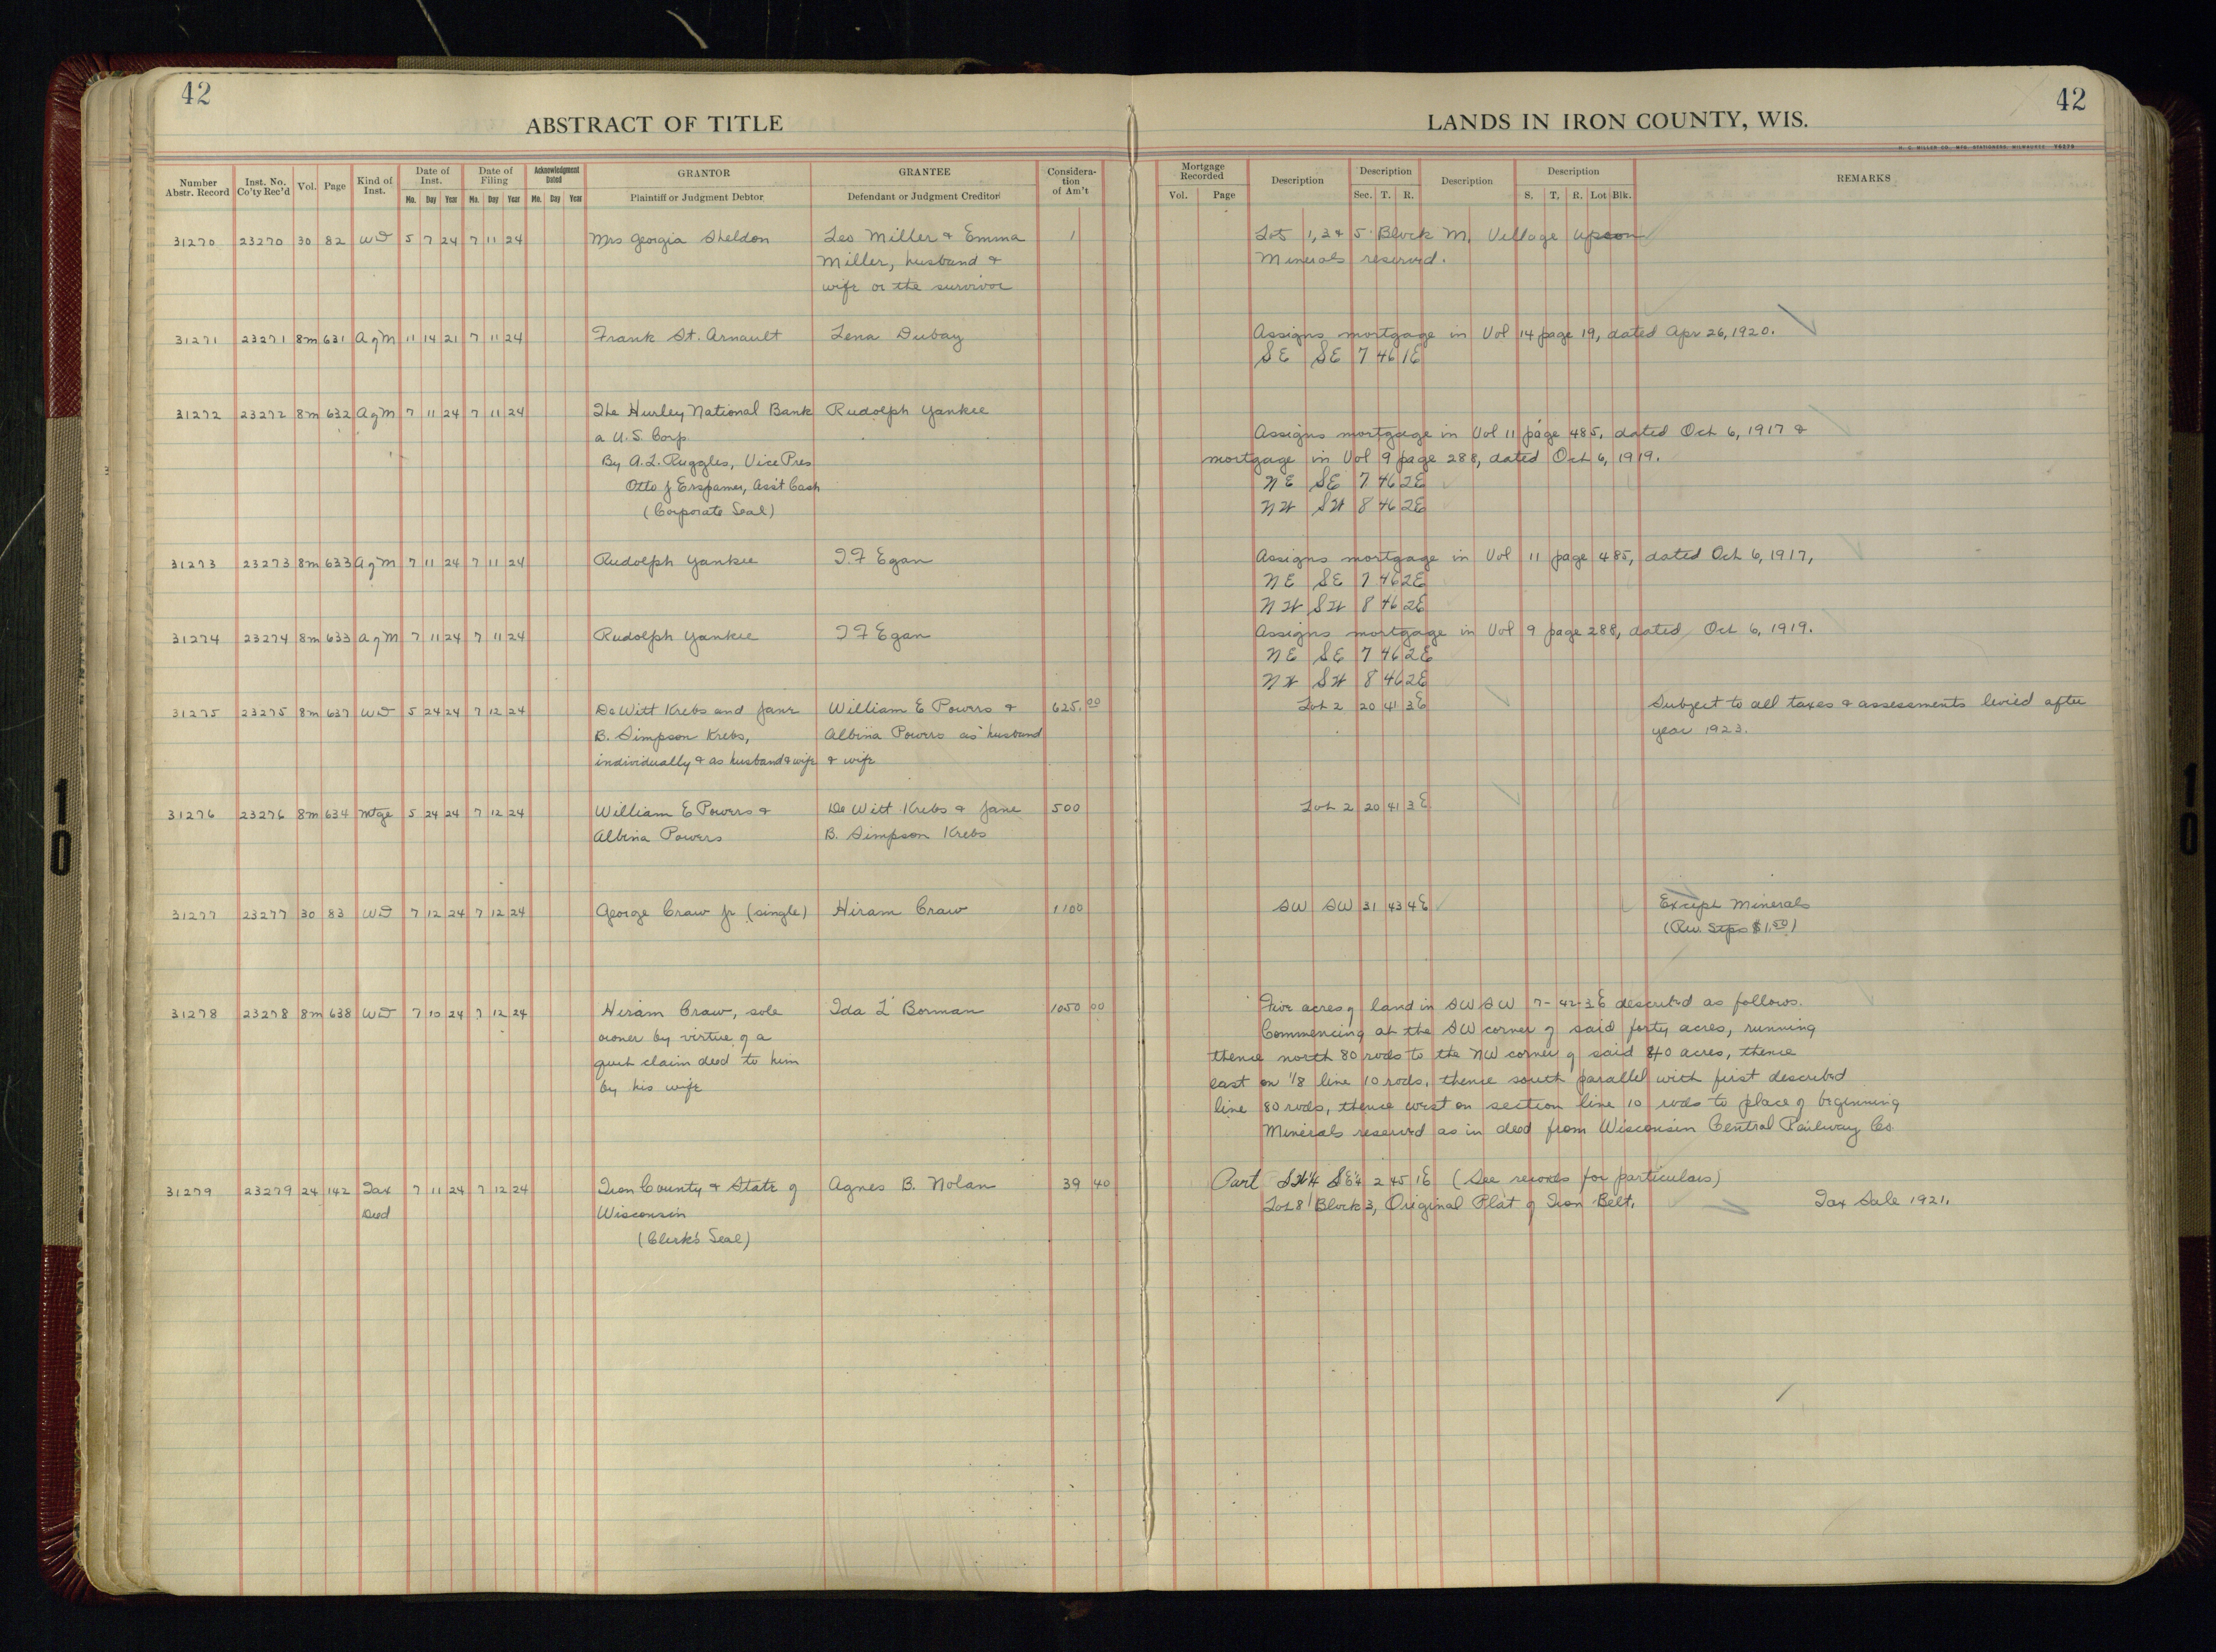 42
42
ABSTRACT OF TITLE
LANDS IN IRON COUNTY, WIS.
Number Abstr. Record | Inst. No. Co'ty Rec'd | Vol. | Page | Kind of Inst. | Date of Inst. Mo. Day Year | Date of Filing Mo. Day Year | Acknowledgment Dated Mo. Day Year | GRANTOR Plaintiff or Judgment Debtor | GRANTEE Defendant or Judgment Creditor | Consideration of Am't | Mortgage Recorded Vol. Page | Description | Description Sec. T. R. | Description | Description S. T. R. Lot Blk. | REMARKS
31270 23270 30 82 WD 5 7 24 7 11 24 Mrs Georgia Sheldon Leo Miller & Emma 1 Lots 1, 3 & 5 Block M, Village Upson
Miller, husband & Minerals reserved.
wife or the survivor
31271 23271 8m 631 AgM 11 14 21 7 11 24 Frank St. Arnault Lena Dubay Assigns mortgage in Vol 14 page 19, dated Apr 26, 1920.
SE SE 7 46 1E
31272 23272 8m 632 AgM 7 11 24 7 11 24 The Hurley National Bank Rudolph Yankee
a U.S. Corp. Assigns mortgage in Vol 11 page 485, dated Oct 6, 1917 &
By A.L. Ruggles, Vice Pres mortgage in Vol 9 page 288, dated Oct 6, 1919.
Otto J Erspamer, Ass't Cash NE SE 7 46 2E
(Corporate Seal) NW SW 8 46 2E
31273 23273 8m 633 AgM 7 11 24 7 11 24 Rudolph Yankee T.F Egan Assigns mortgage in Vol 11 page 485, dated Oct 6, 1917,
NE SE 7 46 2E
NW SW 8 46 2E
31274 23274 8m 633 AgM 7 11 24 7 11 24 Rudolph Yankee T F Egan Assigns mortgage in Vol 9 page 288, dated Oct 6, 1919.
NE SE 7 46 2E
NW SW 8 46 2E
31275 23275 8m 637 WD 5 24 24 7 12 24 DeWitt Krebs and Jane William E Powers & 625.00 Lot 2 20 41 3E Subject to all taxes & assessments levied after
B. Simpson Krebs, Albina Powers as husband year 1923.
individually & as husband & wife & wife
31276 23276 8m 634 Mtge 5 24 24 7 12 24 William E Powers & De Witt Krebs & Jane 500 Lot 2 20 41 3E
Albina Powers B. Simpson Krebs
31277 23277 30 83 WD 7 12 24 7 12 24 George Craw Jr (single) Hiram Craw 1100 SW SW 31 43 4E Except Minerals
(Rev. Stps $1.50)
31278 23278 8m 638 WD 7 10 24 7 12 24 Hiram Craw, sole Ida L Borman 1050 00 Five acres of land in SW SW 7-42-3E described as follows.
owner by virtue of a Commencing at the SW corner of said forty acres, running
quit claim deed to him thence north 80 rods to the NW corner of said 40 acres, thence
by his wife east on 1/8 line 10 rods, thence south parallel with first described
line 80 rods, thence west on section line 10 rods to place of beginning
Minerals reserved as in deed from Wisconsin Central Railway Co
31279 23279 24 142 Tax Deed 7 11 24 7 12 24 Iron County & State of Agnes B. Nolan 39 40 Part SW¼ SE¼ 2 45 1E (See records for particulars)
Wisconsin Lot 8 Block 3, Original Plat of Iron Belt. Tax Sale 1921.
(Clerk's Seal)
10
10